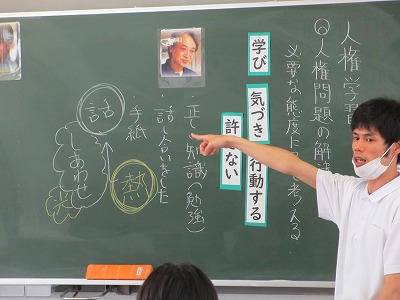 人権学習
◎人権問題の解
必要な態度に 考える
学び
気づき 行動する
許 ない
・正しい知識(勉強)
・話し合いました
・手紙
話
しあわせ
熱
光